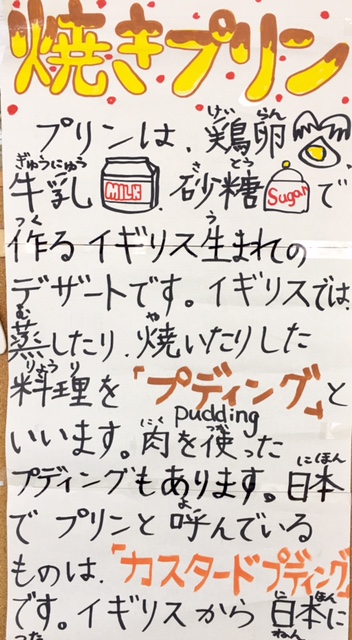 焼きプリン
けい らん
プリンは、鶏卵
ぎゅうにゅう さ とう
牛乳 MILK 、砂糖 Sugar で
つく う
作るイギリス生まれの
デザートです。イギリスでは、
む や
蒸したり、焼いたりした
りょうり
料理を「プディング」と
pudding
にく つか
いいます。肉を使った
にほん
プディングもあります。日本
よ
でプリンと呼んでいる
ものは、「カスタードプディング」
にほん
です。イギリスから日本に
つた ねん